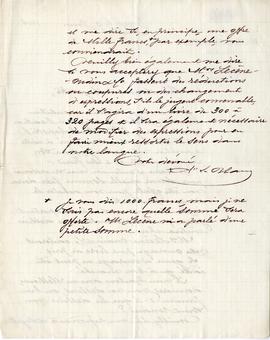 et me dire si, en principe, une offre
de Mille francs, par exemple vous
conviendrait.
Veuillez bien également me dire
si vous accepteriez que Mm Lecène
fassent des réductions
ou coupures ou des changements
d'expressions s'ils le jugent convenable,
car il s'agira d'un livre de 300 à
320 pages et il sera également nécessaire
de modifier des expressions pour en
faire mieux ressortir le sens dans
notre langue.
Votre dévoué
* je vous dis 1000 francs, mais je ne
sais pas encore quelle somme sera
offerte. Lecène m'a parlé d'une
petite somme.